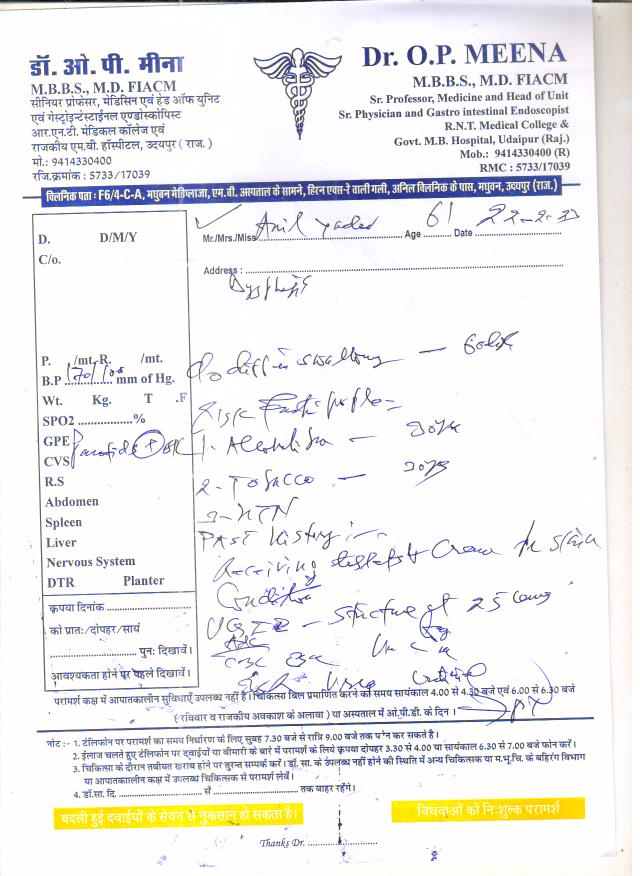 डॉ. ओ. पी. मीना
M.B.B.S., M.D. FIACM
सीनियर प्रोफेसर, मेडिसिन एवं हेड ऑफ यूनिट
एवं गेस्ट्रोइन्टेस्टाईनल एण्डोस्कोपिस्ट
आर.एन.टी. मेडिकल कॉलेज एवं
राजकीय एम.बी. हॉस्पीटल, उदयपुर ( राज. )
मो.: 9414330400
रजि.क्रमांक : 5733/17039
Dr. O.P. MEENA
M.B.B.S., M.D. FIACM
Sr. Professor, Medicine and Head of Unit
Sr. Physician and Gastro intestinal Endoscopist
R.N.T. Medical College &
Govt. M.B. Hospital, Udaipur (Raj.)
Mob.: 9414330400 (R)
RMC : 5733/17039
क्लिनिक पता : F6/4-C-A, मधुवन मेडिप्लाजा, एम.बी. अस्पताल के सामने, हिरन एक्स-रे वाली गली, अनिल क्लिनिक के पास, मधुवन, उदयपुर (राज.)
Mr./Mrs./Miss Anil Yadav Age 61 Date 22-2-23
Address :
D. D/M/Y
C/o.
P. /mt. R. /mt.
B.P 170/100 mm of Hg.
Wt. Kg. T .F
SPO2 ..................%
GPE
CVS
R.S
Abdomen
Spleen
Liver
Nervous System
DTR Planter
कृपया दिनांक
को प्रातः/दोपहर/सायं
पुनः दिखावें।
आवश्यकता होने पर पहले दिखावें।
Dysphagia
c/o diff in swallowing —
Risk Factor profile -
1. Alcoholism —
2. Tobacco —
3. HTN
Past History :-
Receiving
Condition
UGIE - stricture at 25 cms
CBC ESR
परामर्श कक्ष में आपातकालीन सुविधाएँ उपलब्ध नहीं है। चिकित्सा बिल प्रमाणित करने का समय सायंकाल 4.00 से 4.30 बजे एवं 6.00 से 6.30 बजे
( रविवार व राजकीय अवकाश के अलावा ) या अस्पताल में ओ.पी.डी. के दिन ।
नोट :- 1. टेलीफोन पर परामर्श का समय निर्धारण के लिए सुबह 7.30 बजे से रात्रि 9.00 बजे तक फोन कर सकते है।
2. ईलाज चलते हुए टेलीफोन पर दवाईयों या बीमारी के बारे में परामर्श के लिये कृपया दोपहर 3.30 से 4.00 या सायंकाल 6.30 से 7.00 बजे फोन करें।
3. चिकित्सा के दौरान तबीयत खराब होने पर तुरन्त सम्पर्क करें। डॉ. सा. के उपलब्ध नहीं होने की स्थिति में अन्य चिकित्सक या म.भू.चि. के बहिरंग विभाग
या आपातकालीन कक्ष में उपलब्ध चिकित्सक से परामर्श लेवें।
4. डॉ.सा. दि. से तक बाहर रहेंगे।
बदली हुई दवाईयों के सेवन से नुकसान हो सकता है।
विधवाओं को निःशुल्क परामर्श
Thanks Dr.